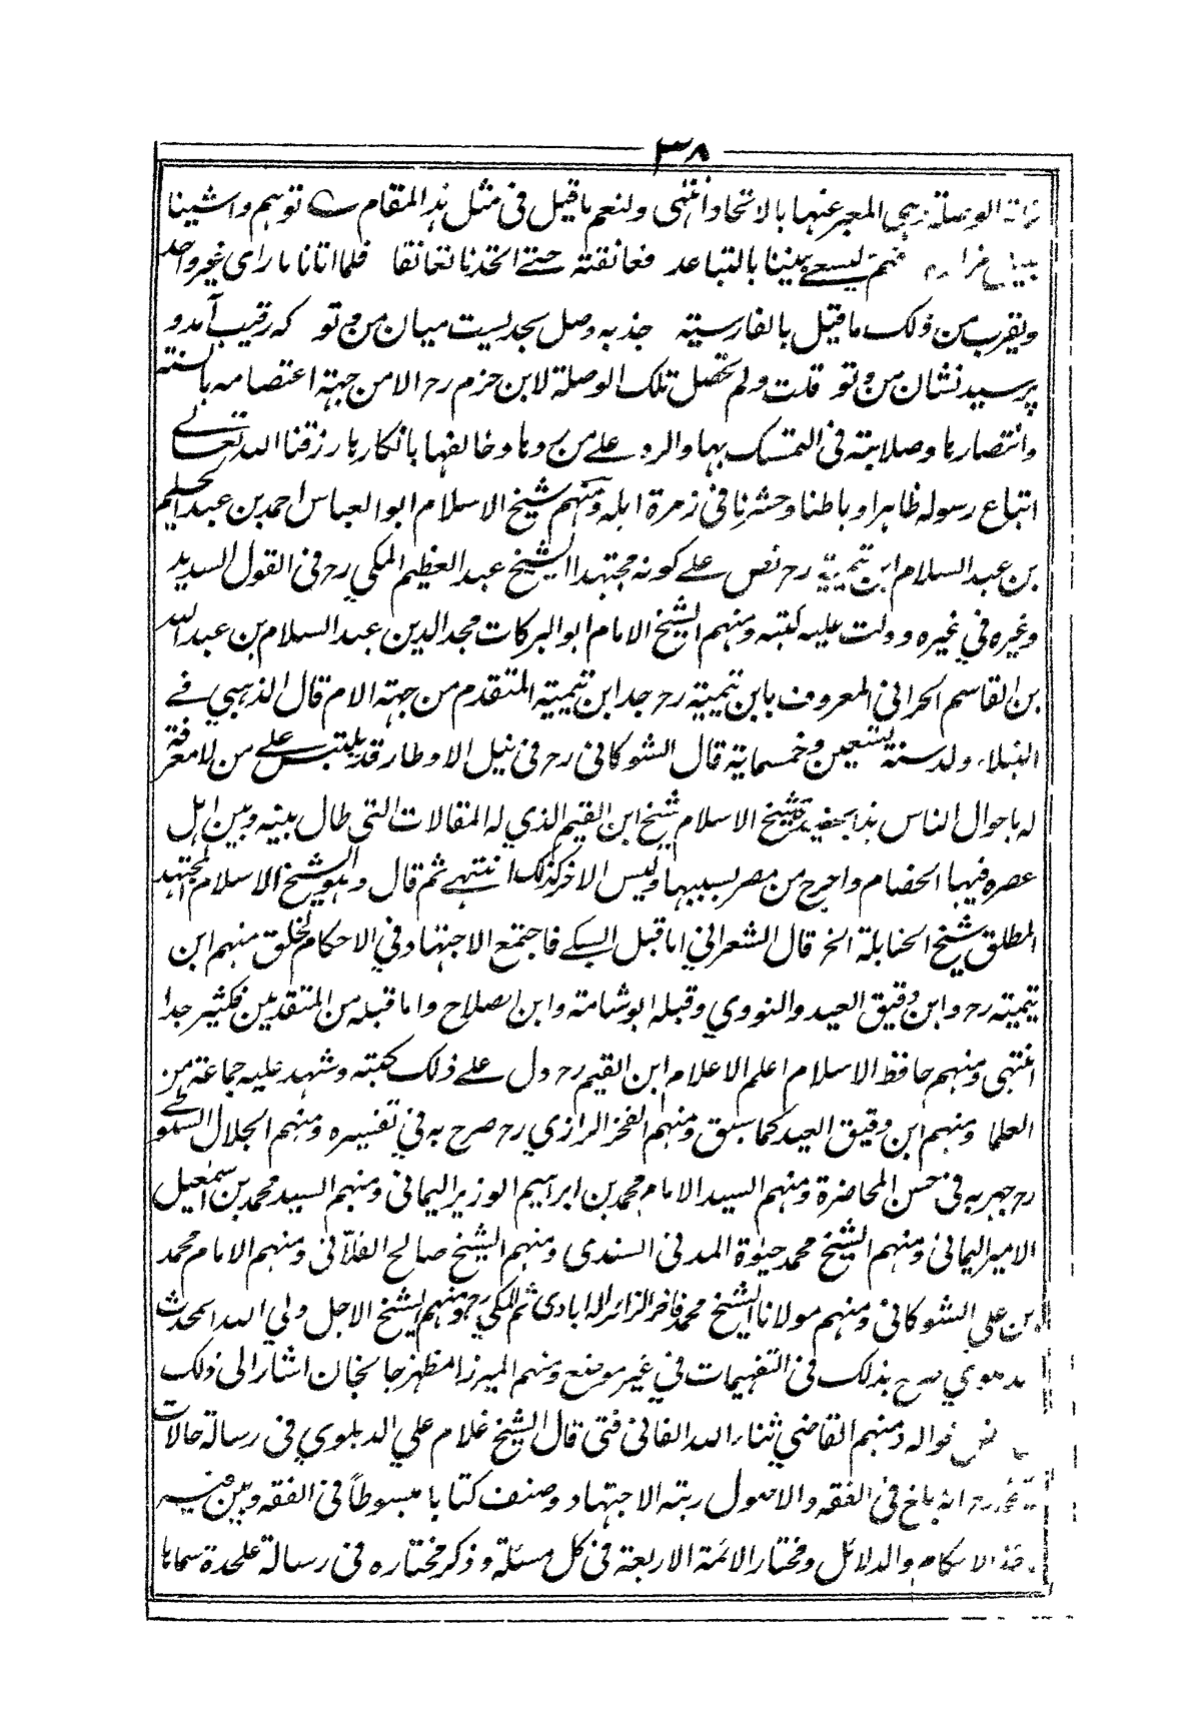 ٣٨
الوصلة هي المعبر عنها بالاتحاد انتهى ولنعم ما قيل في مثل هذا المقام توهم واشينا
بليل فهم ليسعى بيننا بالتباعد فعانقته حتى اتحدنا تعانقا فلما اتانا ما راى غير واحد
ويقرب من ذلك ما قيل بالفارسية جذبه وصل بحديست ميان من و تو كه رقيب آمد و
پرسيد نشان من و تو قلت ولم تحصل تلك الوصلة لابن حزم رح الا من جهة اعتصامه بالسنة
وانتصارها وصلابته في التمسك بها والرد على من ردها وخالفها بانكارها رزقنا الله تعالى
اتباع رسوله ظاهرا وباطنا وحشرنا في زمرة اهله ومنهم شيخ الاسلام ابو العباس احمد بن عبد الحليم
بن عبد السلام ابن تيمية رح نص على كونه مجتهدا الشيخ عبد العظيم المكي رح في القول السديد
وغيره في غيره ودلت عليه كتبه ومنهم الشيخ الامام ابو البركات مجد الدين عبد السلام بن عبد الله
بن القاسم الحراني المعروف بابن تيمية رح جد ابن تيمية المتقدم من جهة الام قال الذهبي في
النبلاء ولد سنة تسعين وخمسماية قال الشوكاني رح في نيل الاوطار قد يلتبس على من لا معرفة
له باحوال الناس هذا بحفيده شيخ الاسلام شيخ ابن القيم الذي له المقالات التي طال بينه وبين اهل
عصره فيها الخصام واخرج من مصر بسببها وليس الاخر كذلك انتهى ثم قال وهو شيخ الاسلام المجتهد
المطلق شيخ الحنابلة الخ قال الشعراني اما قبل السبكي فاجتمع الاجتهاد في الاحكام لخلق منهم ابن
تيمية رح وابن دقيق العيد والنووي وقبله ابو شامة وابن الصلاح واما قبله من المتقدمين فكثير جدا
انتهى ومنهم حافظ الاسلام اعلم الاعلام ابن القيم رح دل على ذلك كتبه وشهد عليه جماعة من
العلما ومنهم ابن دقيق العيد كما سبق ومنهم الفخر الرازي رح صرح به في تفسيره ومنهم الجلال السيوطي
رح جهر به في حسن المحاضرة ومنهم السيد الامام محمد بن ابراهيم الوزير اليماني ومنهم السيد محمد بن اسمعيل
الامير اليماني ومنهم الشيخ محمد حيوة المدني السندى ومنهم الشيخ صالح الفلاّني ومنهم الامام محمد
بن علي الشوكاني ومنهم مولانا الشيخ محمد فاخر الزائر اله ابادى ثم المكي رح ومنهم الشيخ الاجل ولي الله المحدث
الدهلوي صرح بذلك في التفهيمات في غير موضع ومنهم الميرزا مظهر جانجان اشار الى ذلك
في بعض اقواله ومنهم القاضي ثناء الله الفاني فتي قال الشيخ غلام علي الدهلوي في رسالة حالات
رح انه بلغ في الفقه والاصول رتبة الاجتهاد وصنف كتابا مبسوطاً في الفقه وبين فيه
ماخذ الاحكام والدلائل ومختار الائمة الاربعة في كل مسئلة وذكر مختاره في رسالة علحدة سماها